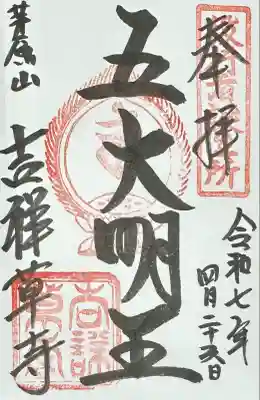 奉拝
令和七年
四月二十五日
五大明王
茅原山
吉祥草寺